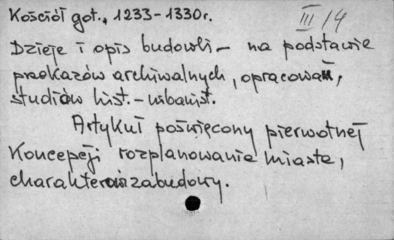 Kościół got., 1233-1330r.
III/4
Dzieje i opis budowli – na podstawie
przekazów archiwalnych, opracowań,
studiów hist.-urbanist.
Artykuł poświęcony pierwotnej
koncepcji rozplanowania miasta,
charakterowi zabudowy.